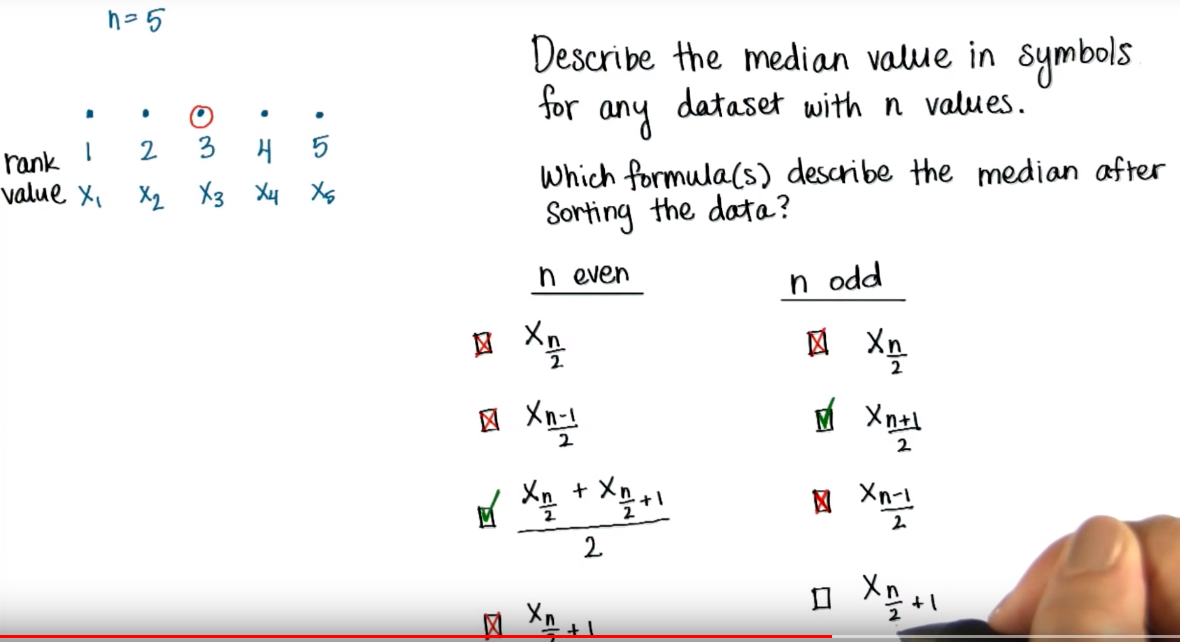 n = 5
1 2 3 4 5
rank
value x₁ x₂ x₃ x₄ x₅
Describe the median value in symbols
for any dataset with n values.
Which formula(s) describe the median after
Sorting the data?
n even
☒ x_{n/2}
☒ x_{(n-1)/2}
☑ (x_{n/2} + x_{n/2 + 1}) / 2
☒ x_{n/2 + 1}
n odd
☒ x_{n/2}
☑ x_{(n+1)/2}
☒ x_{(n-1)/2}
☐ x_{n/2 + 1}